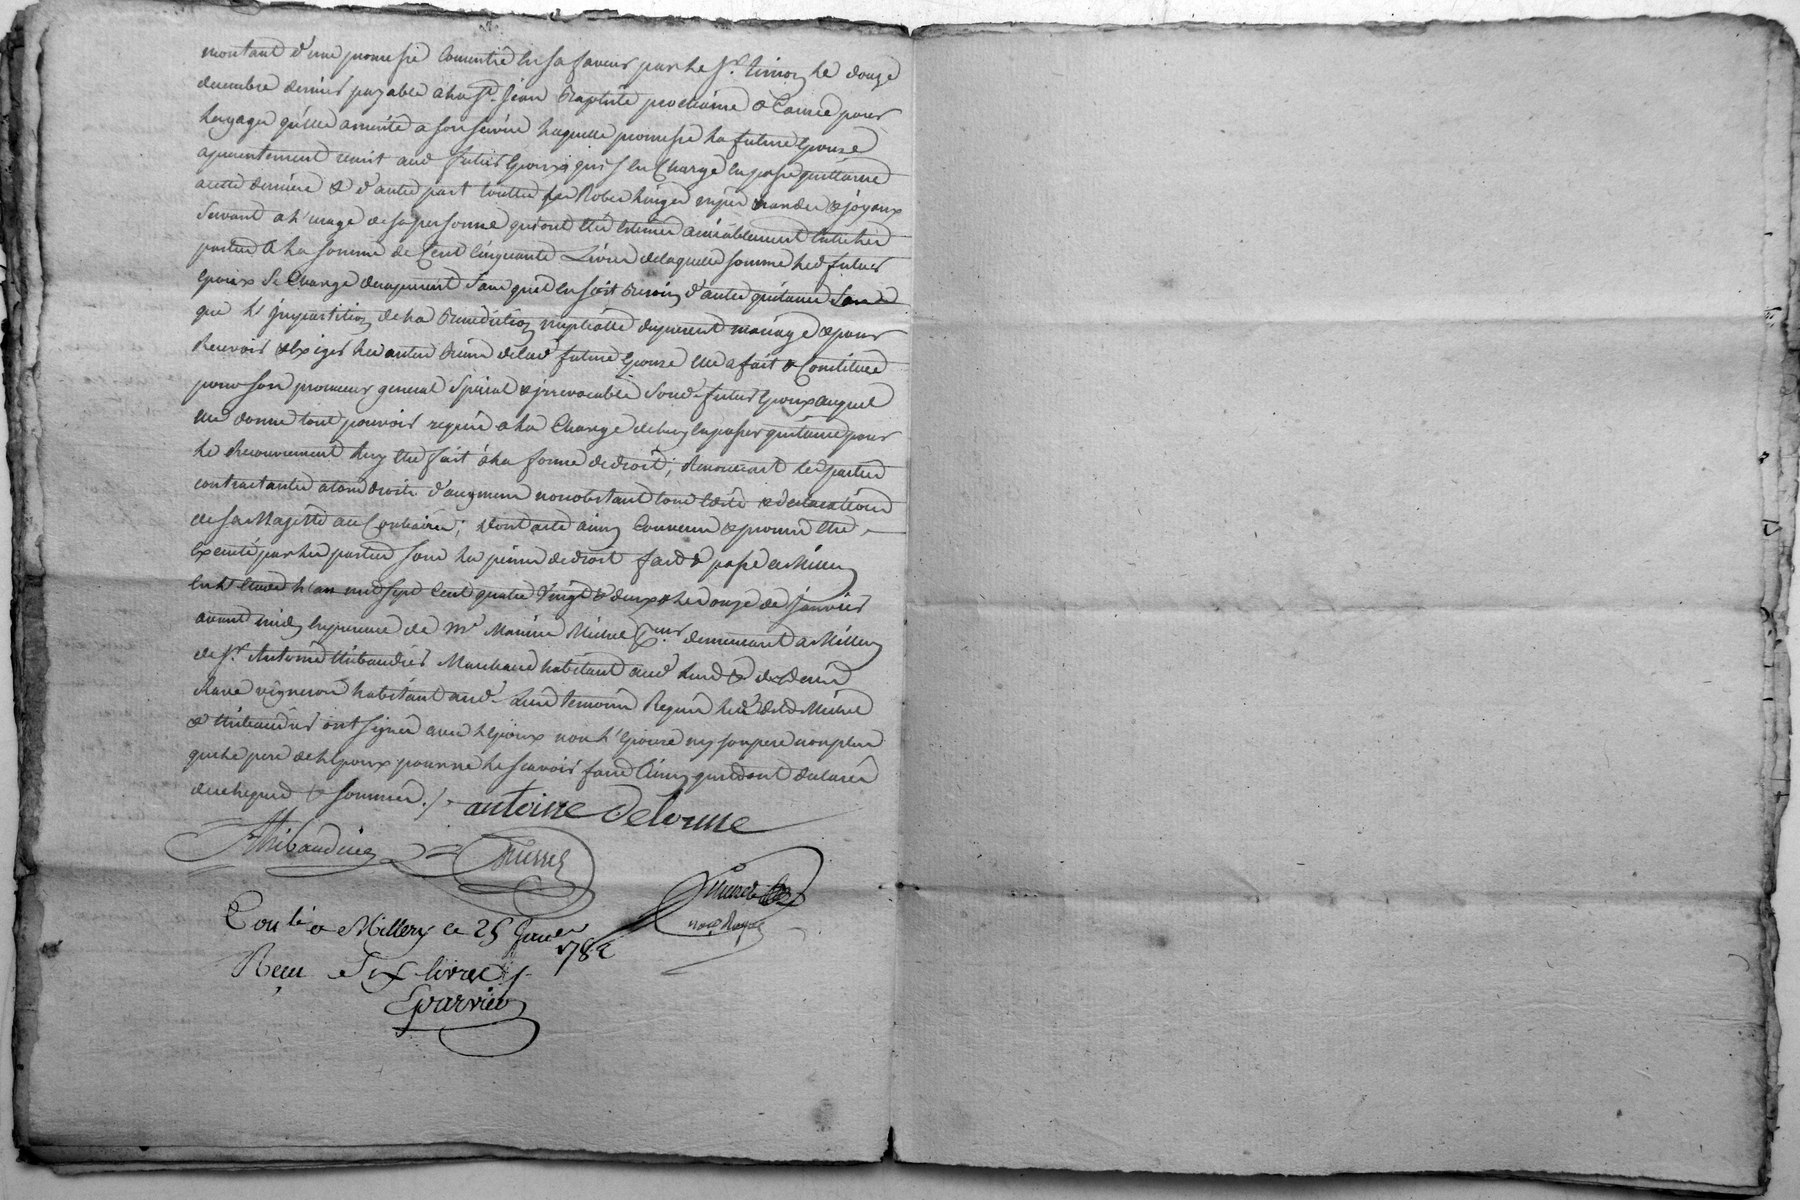 montant d'une promesse Consentie en sa faveur par le Sr. Timon le douze
decembre dernier payable a la St. Jean Baptiste prochaine a Causee pour
les gages qu'elle a merité a son service laquelle promesse la future Epouse
a presentement remit aud. futur Epoux qui s'en Charge en passe quittance
a cette derniere & d'autre part touttes ses Robes linges nipes & joyaux
Servant a l'usage de sa personne qui ont été Estimés amiablement entre les
parties a la somme de Cent Cinquante Livres de laquelle somme led. futur
Epoux se Charge des apresent sans quil en soit Besoin d'autre quitance
que l'impartition de la Benediction nuptialle du present mariage & pour
Recevoir & Exiger les autres Biens de lad. future Epouse Elle a fait & Constitué
pour son procureur general special & irrevocable Sond. futur Epoux auquel
Elle donne tout pouvoir requis a la Charge de luy en passer quitance pour
le Recouvrement luy Etre fait a la forme de droit; Renoncant les parties
contractantes a tous droits d'augment nonobstant tous Edits & declarations
de sa Majesté au Contraire; dont acte ainsy Convenu & promis Etre
Executé par les parties sous les peines de droit fait & passé a Millery
en l'Etude l'an mil sept Cent quatre Vingt & deux & le douze de janvier
avant midy en presence de Me Michel demeurant a Millery
de Sr. Antoine Thibaudier Marchand habitant aud. lieu &
Rave vigneron habitant aud. Lieu temoins Requis led. Michel
& Thibaudier ont signés avec l'Epoux non l'Epouse ny son pere non plus
que le pere de l'Epoux pour ne le scavoir faire Ainsy quils ont declarés
de ce Enquis & sommés ./.
antoine delorme
Thibaudier
Conlé a Millery ce 25 Janvier
1782
Recu Six livres
Eparvier